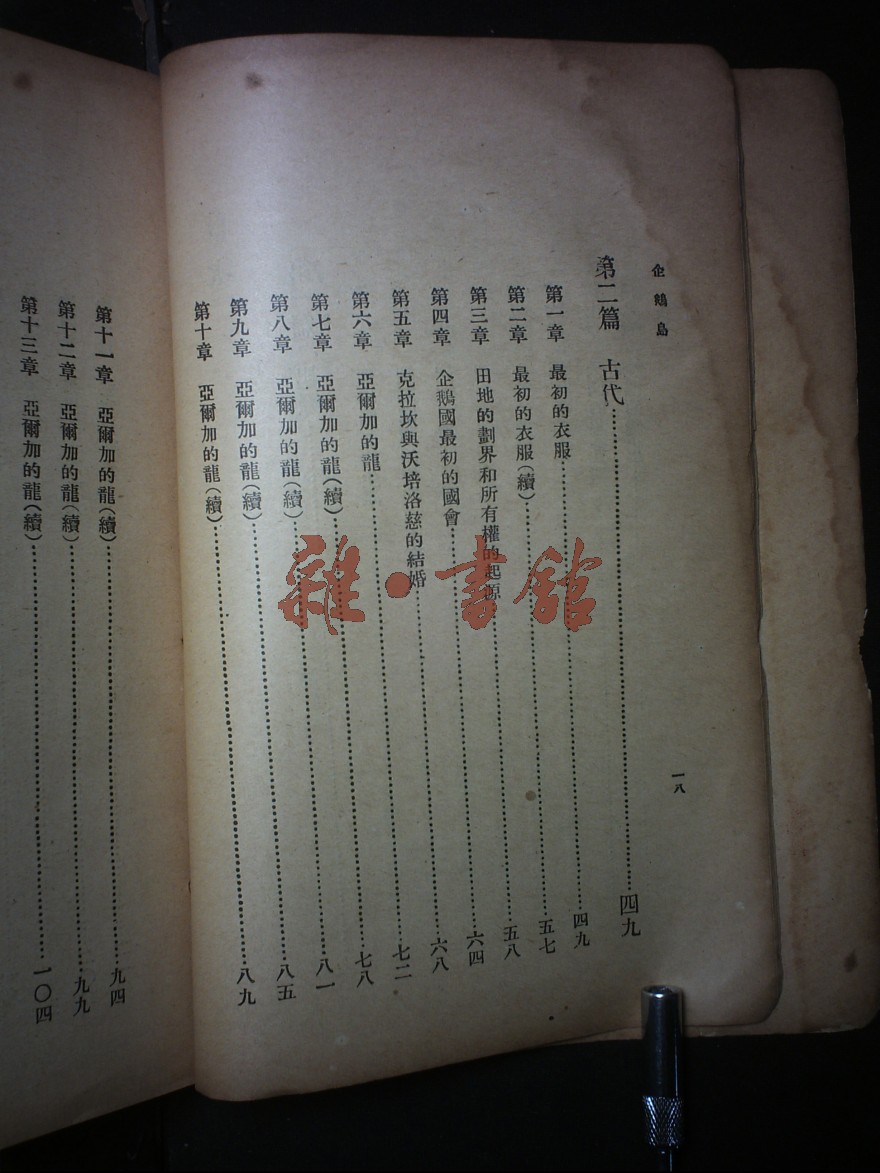 企鵝島
一八
第二篇 古代……四九
第一章 最初的衣服……四九
第二章 最初的衣服(續)……五七
第三章 田地的劃界和所有權的起源……五八
第四章 企鵝國最初的國會……六四
第五章 克拉坎與沃培洛慈的結婚……六八
第六章 亞爾加的龍……七二
第七章 亞爾加的龍(續)……七八
第八章 亞爾加的龍(續)……八一
第九章 亞爾加的龍(續)……八五
第十章 亞爾加的龍(續)……八九
第十一章 亞爾加的龍(續)……九四
第十二章 亞爾加的龍(續)……九九
第十三章 亞爾加的龍(續)……一〇四
雜·書館